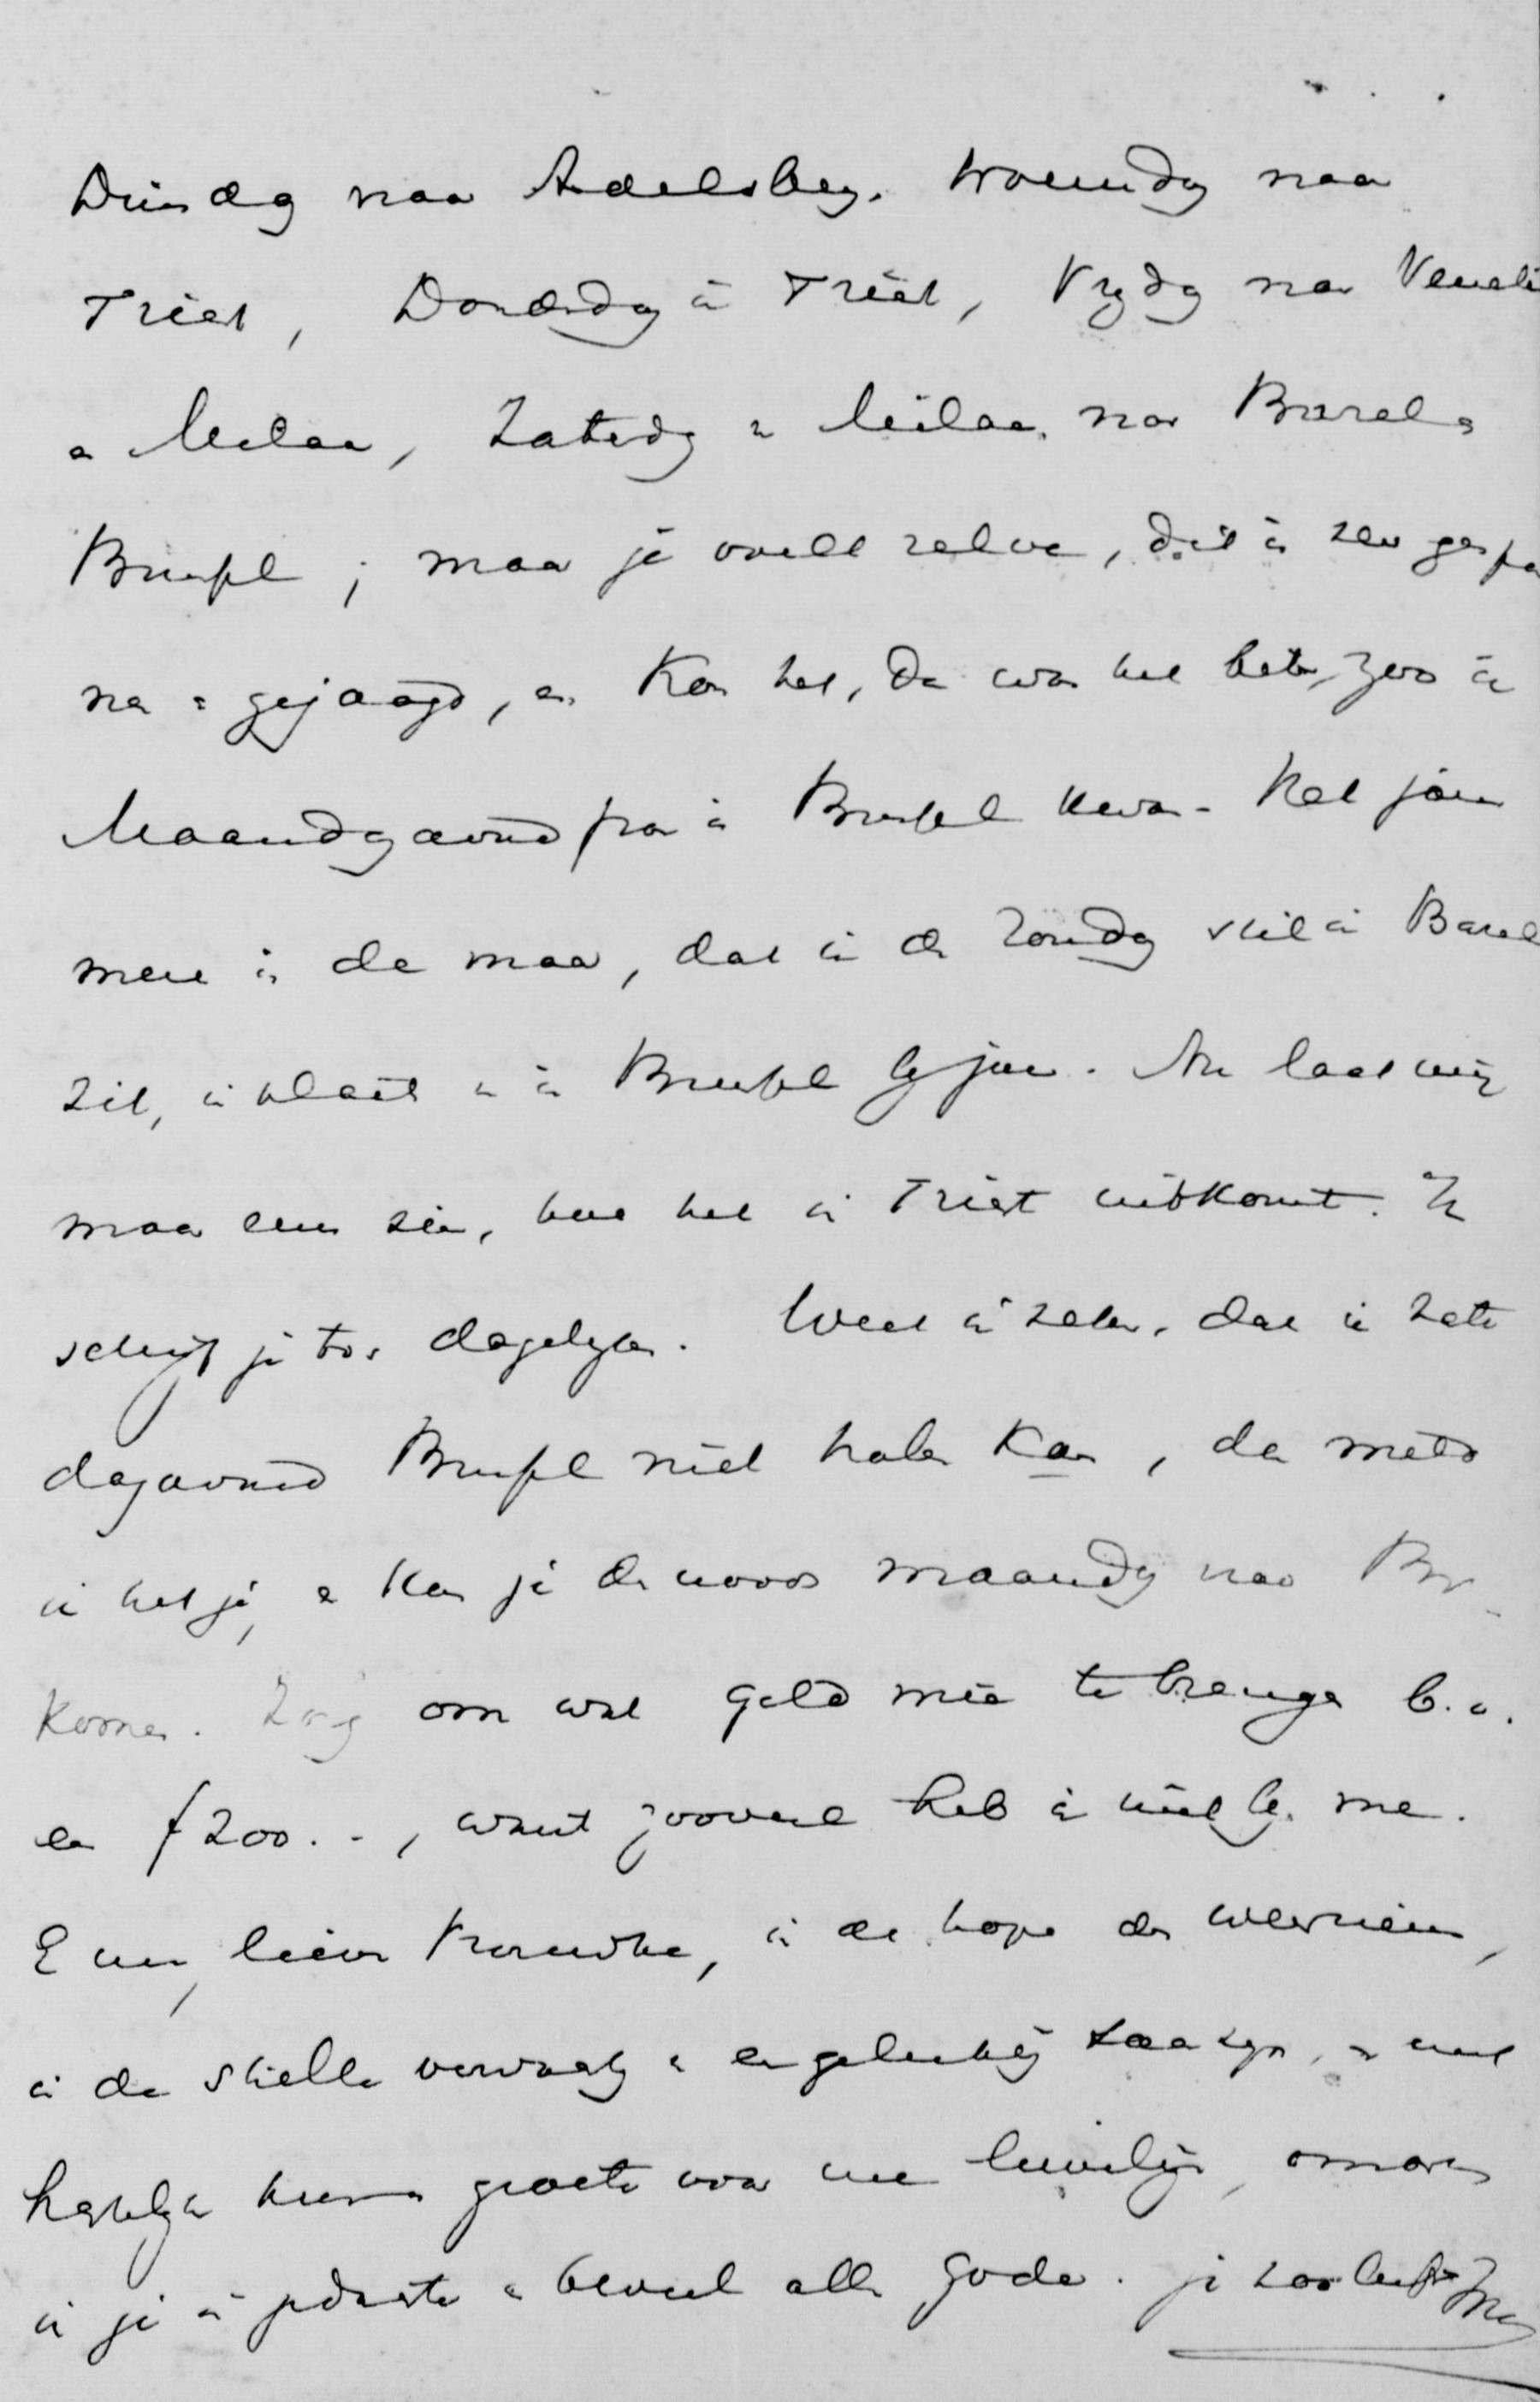 Dinsdag naar Adelsberg. Woensdag naar
Triest, Donderdag in Triest, Vrydag naar Veneti
en Milaan, Zaterdag v Milaan naar Bazel en
Brussel; maar je voelt zelve, dit is zeer gespan
nen en gejaagd, en kon het, dan was het beter, zoo ik
Maandagavond pas in Brussel kwam. Het jam
mere is dan maar, dat ik den Zondag stil in Bazel
zit, in plaats van in Brussel by jou. Nu laat mij
maar eens zien, hoe het in Triest uitkomt. Ik
schryf je toch dagelyks. Weet ik zeker, dat ik Zater
dagavond Brussel niet halen kan, dan meld
ik het je, en kan je dan voor maandag naar Br.
komen. Zorg om wat geld mee te brengen b.v.
een f 200.-, want zooveel heb ik niet by me.
En nu, lieve vrouwke, in de hope des weerziens,
in de stille verwachting v een gelukkig saamzyn, en met
hartelyke kussen groeten voor uw lievelingen, omarm
ik je in gedachte en beveel allen Gode. je zoo liefh.